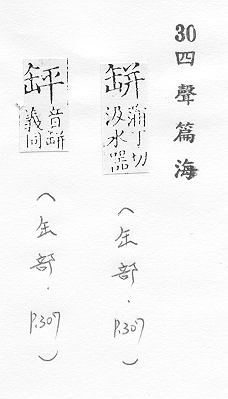 30四聲篇海
缾 蒲丁切 汲水器
（缶部．P.307）
缻平 音缾 義同
（缶部．P.307）